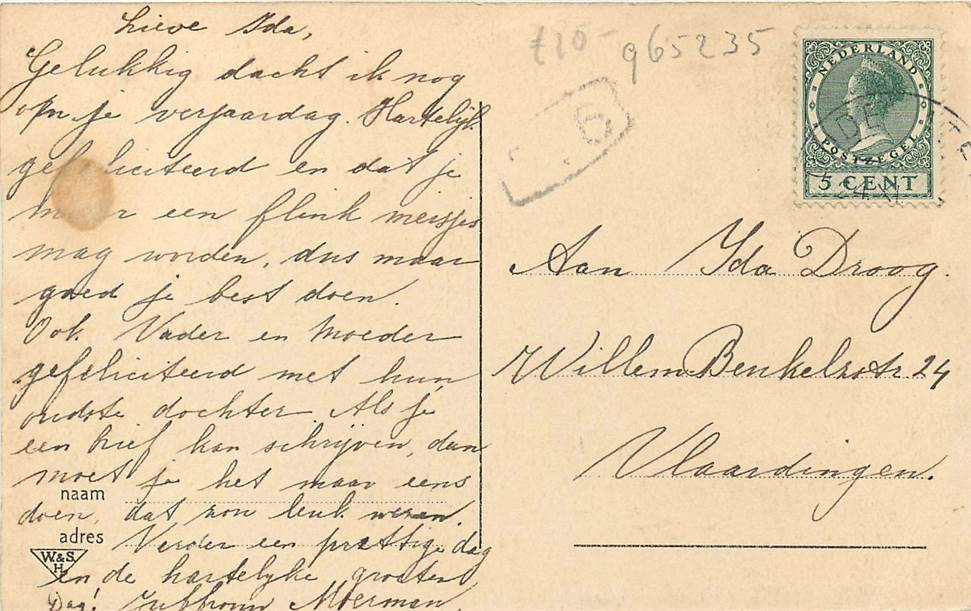 Lieve Ida,
Gelukkig dacht ik nog
om je verjaardag. Hartelijk
gefeliciteerd en dat je
maar een flink meisje
mag worden, dus maar
goed je best doen.
Ook Vader en Moeder
gefeliciteerd met hun
oudste dochter. Als je
een brief kan schrijven, dan
moet je het maar eens
doen, dat zou leuk wezen.
Verder een prettige dag
en de hartelijke groeten
Dag! Juffrouw Moerman.
naam
adres
W&S.
H
£10-
965235
NEDERLAND
POSTZEGEL
5 CENT
Aan Ida Droog.
Willem Beukelszstr 24
Vlaardingen.